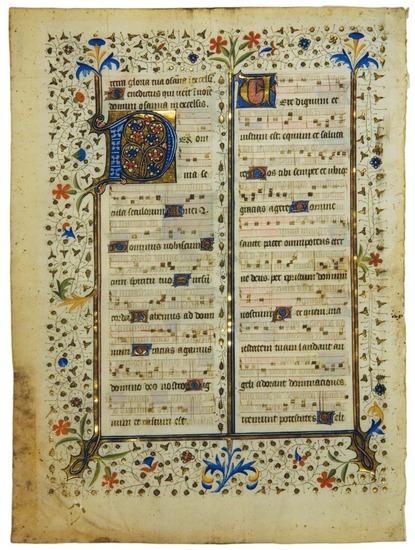 terra gloria tua osana i excels
Benedictus qui venit i noie
domini osanna in excelsis.
Per om
nia se
cula seculorum
Dominus vobiscum
cum spiritu tuo Sursu
corda Habemus ad domi
num Gratias agamus
domino deo nostro Dig
num et iustum est.
Vere dignum et
iustum est equum et saluta
nos tibi semper et ubiq
gracias agere Domine
sancte pater omnipotens eter
ne deus per xpristum dominum
nostrum Per quem ma
iestatem tuam laudant an
geli adorant dominationes
tremunt potestates Celi